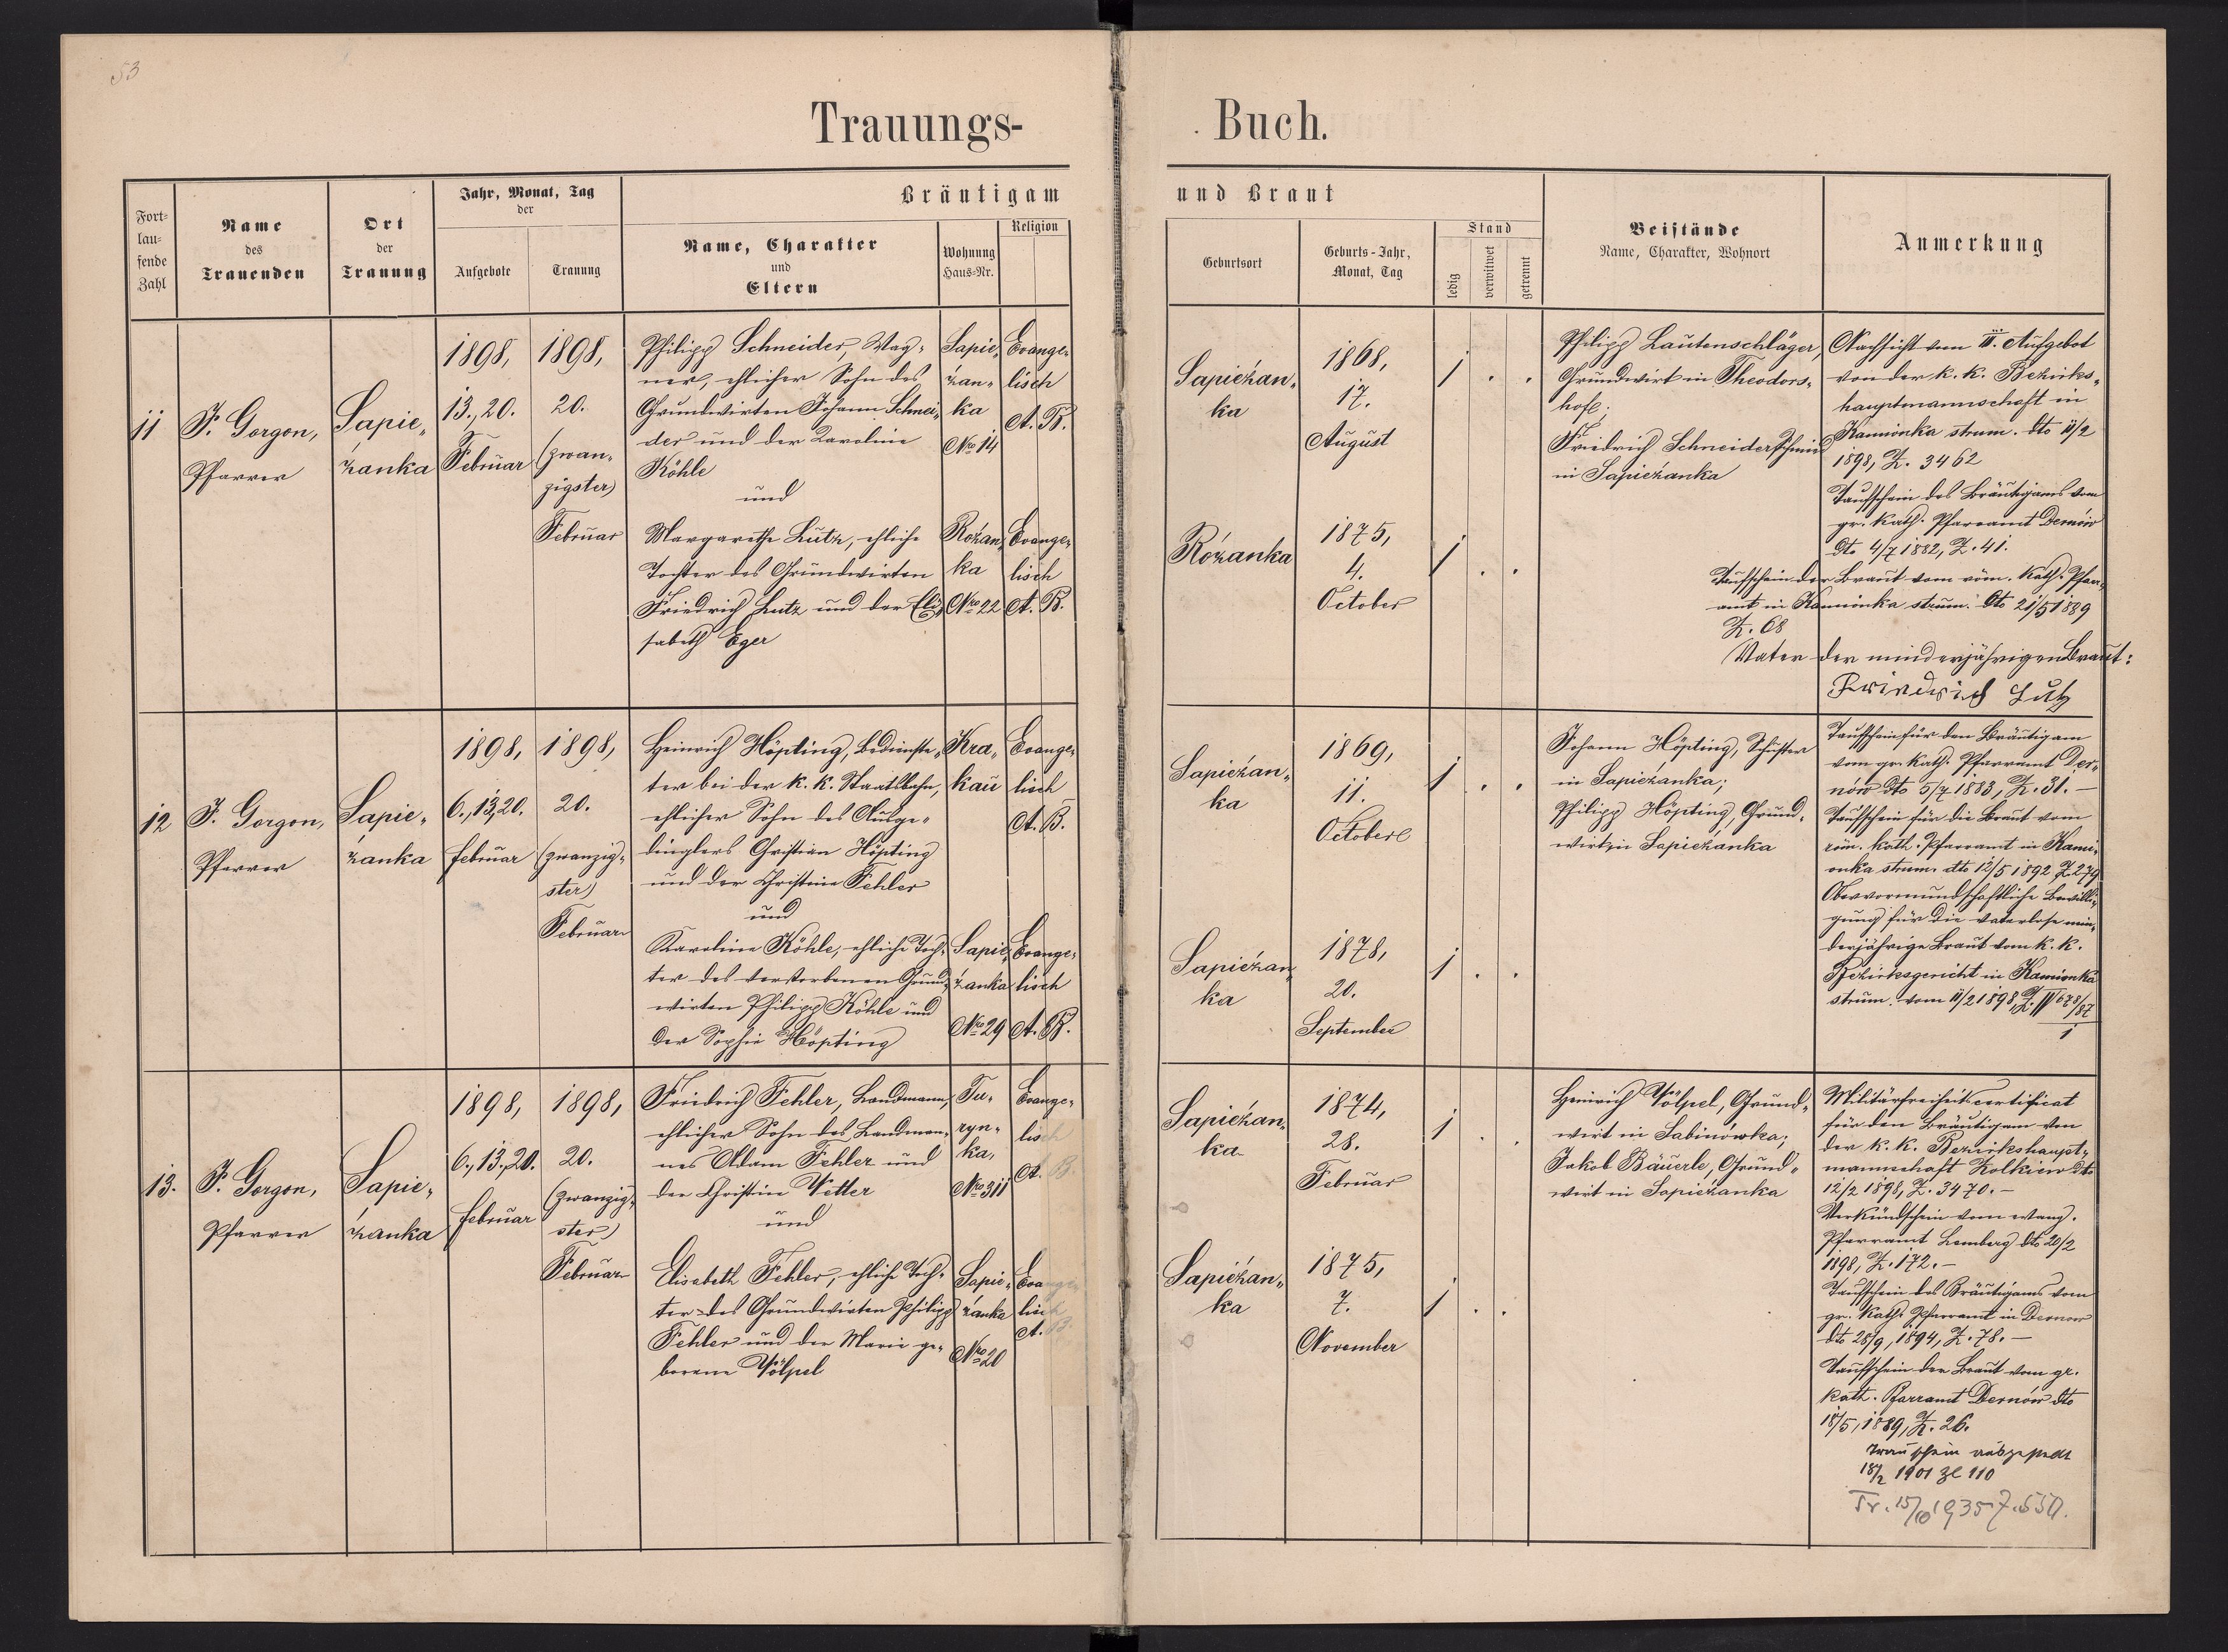 53
Trauungs-
Buch.
Fort-
lau-
fende
Zahl
Name
des
Trauenden
Ort
der
Trauung
Jahr, Monat, Tag
der
Aufgebote
Trauung
Bräutigam
Name, Charakter
und
Eltern
Wohnung
Haus-Nr.
Religion
und Braut
Geburtsort
Geburts-Jahr,
Monat, Tag
Stand
ledig
verwitwet
getrennt
Beistände
Name, Charakter, Wohnort
Anmerkung
11
J. Gorgon,
Pfarrer
Sapie-
żanka
1898,
13., 20.
Februar
1898,
20.
(zwan-
zigster)
Februar
Philipp Schneider, Wag-
ner, ehlicher Sohn des
Grundwirten Johann Schnei-
der und der Karoline
Köhle
und
Margarethe Lutz, ehliche
Tochter des Grundwirten
Friedrich Lutz und der Eli-
sabeth Eger
Sapie-
żan-
ka
Nro 14
Evange-
lisch
A. B.
Różan-
ka
Nro 22
Evange-
lisch
A. B.
Sapieżan-
ka
1868,
17.
August
1 . .
Różanka
1875,
4.
October
1 . .
Philipp Lautenschläger,
Grundwirt in Theodors-
hof;
Friedrich Schneider, Schmied
in Sapieżanka
Nachsicht vom III. Aufgebot
von der k. k. Bezirks-
hauptmannschaft in
Kamionka strum. dto 11/2
1898, Z. 3462
Taufschein des Bräutigams vom
gr. kath. Pfarramt Dernów
dto 4/7 1882, Z. 41.
Taufschein der Braut vom röm. kath. Pfarr-
amt in Kamionka strum. dto 21/5 1889
Z. 68
Vater der minderjährigen Braut:
Friedrich Lutz
12
J. Gorgon,
Pfarrer
Sapie-
żanka
1898,
6., 13., 20.
Februar
1898,
20.
(zwanzig-
ster)
Februar
Heinrich Höpting, Bedienste-
ter bei der k. k. Staatsbahn,
ehlicher Sohn des Ausge-
dinglers Christian Höpting
und der Christine Fehler
und
Karoline Köhle, ehliche Toch-
ter des verstorbenen Grund-
wirten Philipp Köhle und
der Sophie Höpting
Kra-
kau
Evange-
lisch
A. B.
Sapie-
żanka
Nro 29
Evange-
lisch
A. B.
Sapieżan-
ka
1869,
11.
October
1 . .
Sapieżan-
ka
1878,
20.
September
1 . .
Johann Höpting, Schuster
in Sapieżanka;
Philipp Höpting, Grund-
wirt in Sapieżanka
Taufschein für den Bräutigam
vom gr. kath. Pfarramt Der-
nów dto 5/7 1883, Z. 31. —
Taufschein für die Braut vom
röm. kath. Pfarramt in Kami-
onka strum. dto 12/5 1892 Z. 279
Obervormundschaftliche Bewilli-
gung für die vaterlose min-
derjährige Braut vom k. k.
Bezirksgericht in Kamionka
strum. vom 11/2 1898, Z. IV 678/87
1
13.
J. Gorgon,
Pfarrer
Sapie-
żanka
1898,
6., 13., 20.
Februar
1898,
20.
(zwanzig-
ster)
Februar
Friedrich Fehler, Landmann,
ehlicher Sohn des Landman-
nes Adam Fehler und
der Christine Vetter
und
Elisabeth Fehler, ehliche Toch-
ter des Grundwirten Philipp
Fehler und der Marie ge-
borene Völpel
Tu-
ryn-
ka,
Nro 311
Evange-
lisch
A. B.
Sapie-
żanka
Nro 20
Evange-
lisch
A. B.
Sapieżan-
ka
1874,
28.
Februar
1 . .
Sapieżan-
ka
1875,
7.
November
1 . .
Heinrich Völpel, Grund-
wirt in Sabinówka;
Jakob Bäuerle, Grund-
wirt in Sapieżanka
Militärfreiheitscertificat
für den Bräutigam von
der k. k. Bezirkshaupt-
mannschaft Żolkiew dto
12/2 1898, Z. 3470. —
Verkündschein vom evang.
Pfarramt Lemberg dto 20/2
1898, Z. 172. —
Taufschein des Bräutigams vom
gr. kath. Pfarramt in Dernow
dto 28/9, 1894, Z. 78. —
Taufschein der Braut vom gr.
kath. Pfarramt Dernów dto
18/5, 1889, Z. 26.
Trauschein ausgestellt
18/2 1901 Zl 110
Tr. 15/10 1935